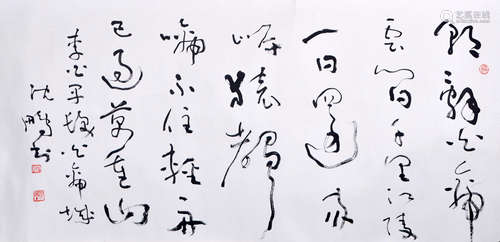 朝辭白帝
彩雲間千里江陵
一日還兩
岸猿聲
啼不住輕舟
已過萬重山
李白早發白帝城
沈鵬書